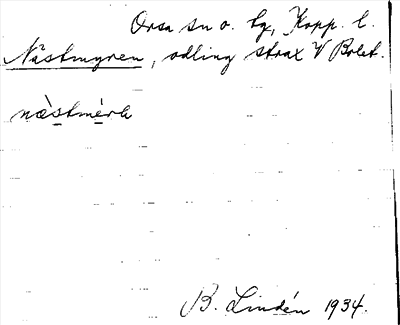 Orsa sn o. tg, Kopp. l.
Nästmyren, odling strax V Bolet.
næ̀stmè̱rα
B. Lindén 1934.